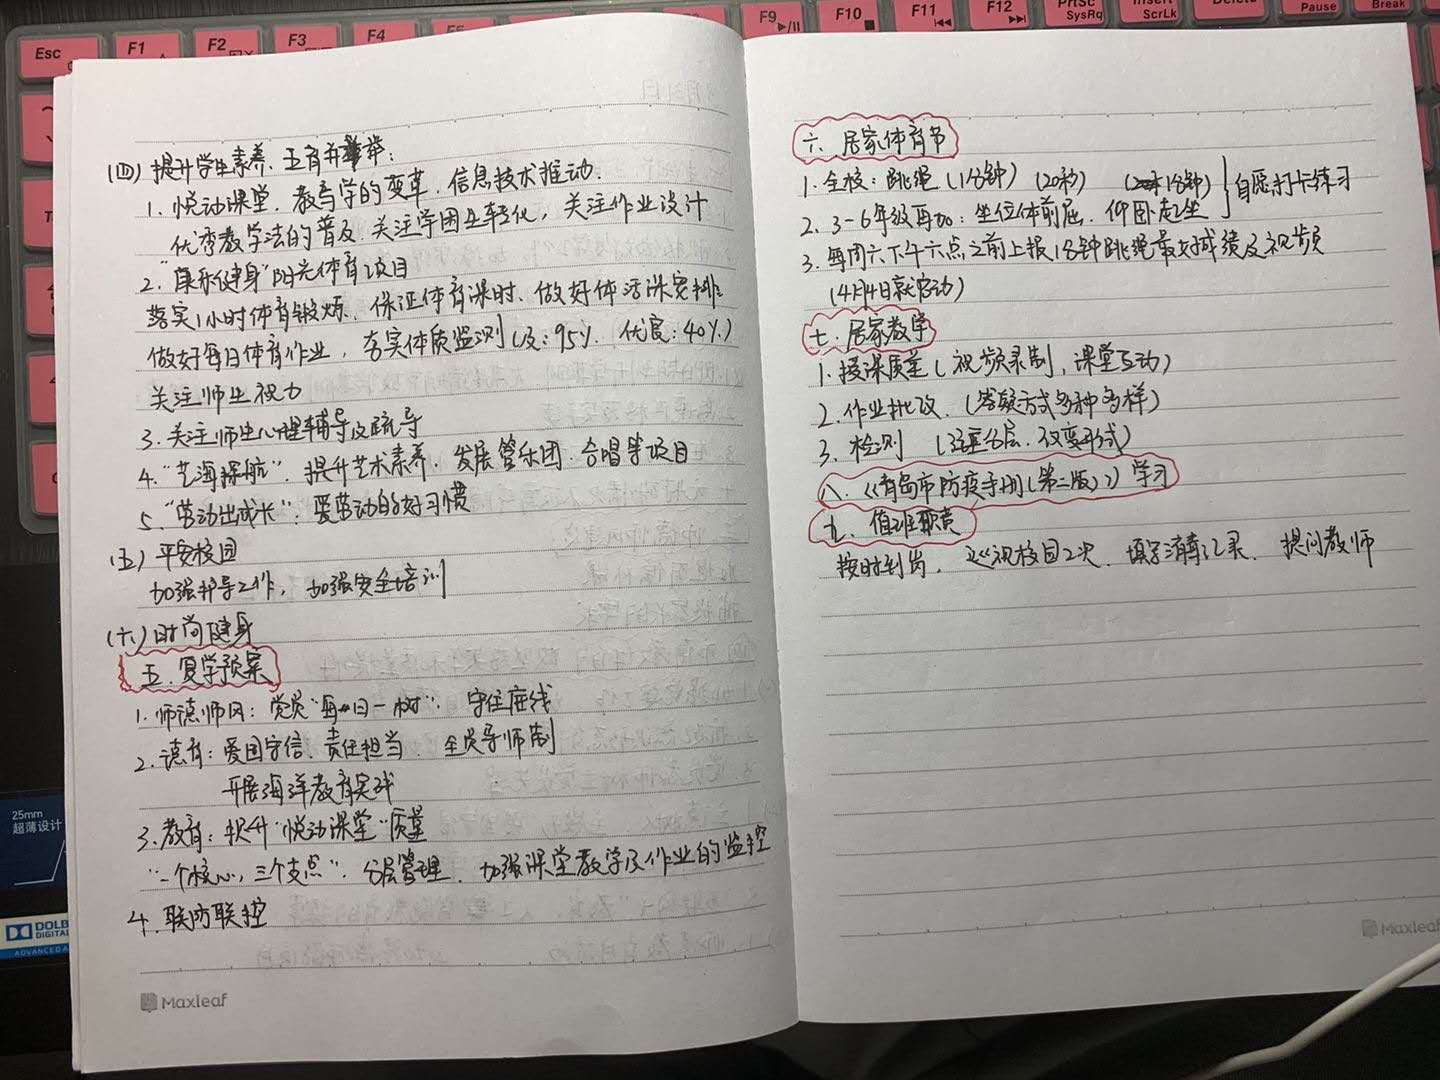 Esc
F1
F2
F3
F4
F9
F10
F11
F12
PrtSc
SysRq
Insert
ScrLk
Delete
Pause
Break
(四)提升学生素养、五育并举:
1. 悦动课堂、教与学的变革、信息技术推动.
优秀教学法的普及、关注学困生转化, 关注作业设计
2. "康乐健身"阳光体育项目
落实1小时体育锻炼、保证体育课时、做好体活课安排
做好每日体育作业, 夯实体质监测(及:95%、优良:40%)
关注师生视力
3. 关注师生心理辅导及疏导
4. "艺海探航"、提升艺术素养、发展管乐团、合唱等项目
5. "劳动出成长": 爱劳动的好习惯
(五)平安校园
加强护导工作, 加强安全培训
(六)时尚健身
五. 复学预案
1. 师德师风: 党员"每日一树"、守住底线
2. 德育: 爱国守信、责任担当、全员导师制
开展海洋教育实践
3. 教育: 提升"悦动课堂"质量
"一个核心, 三个支点"、分层管理、加强课堂教学及作业的监控
4. 联防联控
Maxleaf
六. 居家体育节
1. 全校: 跳绳(1分钟)(20秒) (1分钟)
2. 3-6年级再加: 坐位体前屈、仰卧起坐
自愿打卡练习
3. 每周六下午六点之前上报1分钟跳绳最好成绩及视频
(4月4日就启动)
七. 居家教学
1. 授课质量(视频录制, 课堂互动)
2. 作业批改、(答疑方式多种多样)
3. 检测 (注重分层、改变形式)
八.《青岛市防疫手册(第二版)》学习
九. 值班职责
按时到岗, 巡视校园2次、填写消毒记录、提问教师
Maxleaf
25mm
超薄设计
DOLB
DIGITAL
ADVANCED A